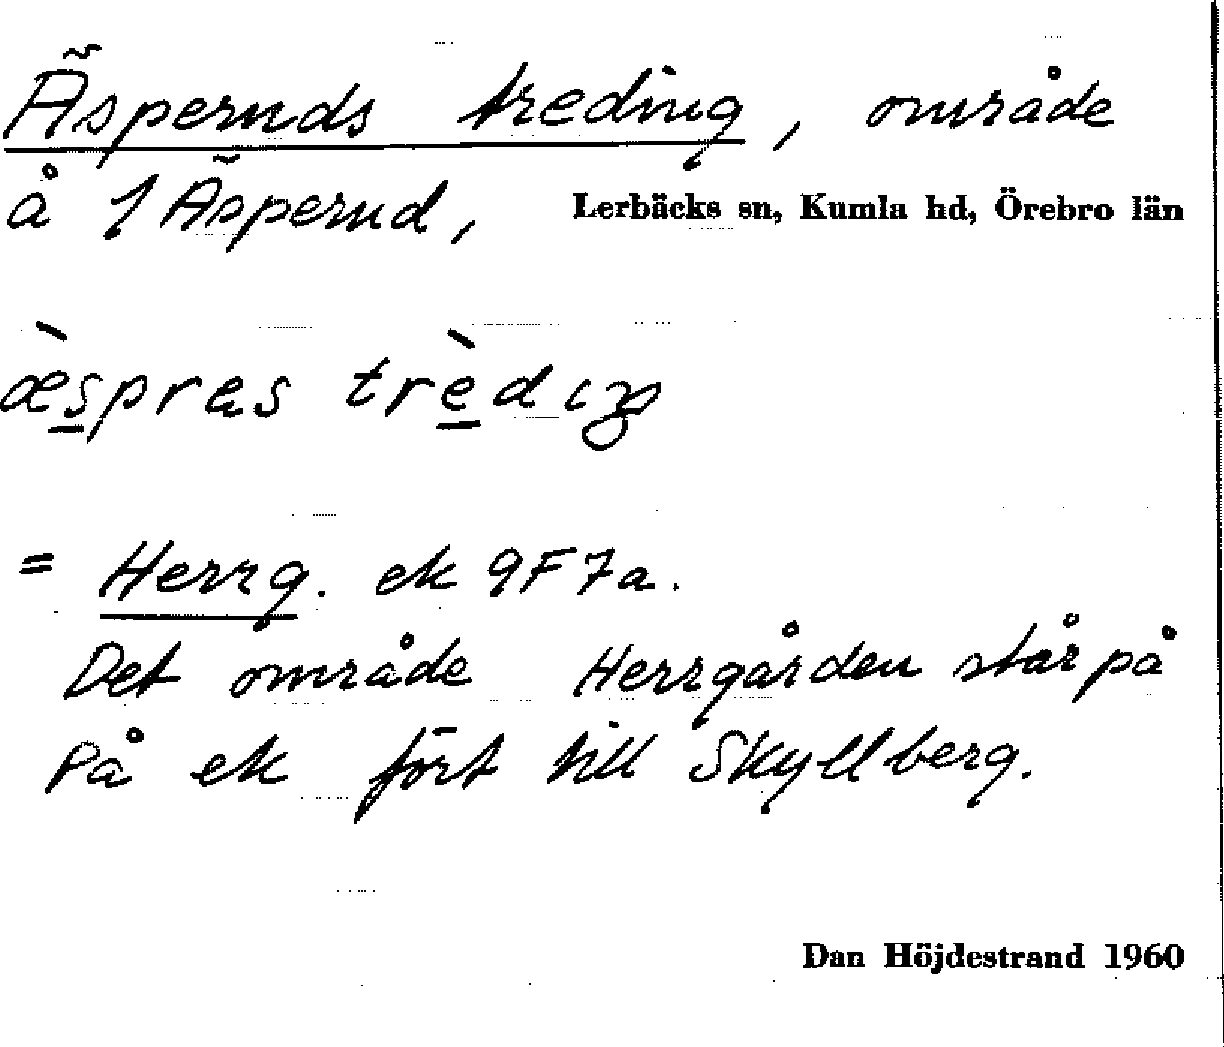 Äspernds treding, område
å 1 Äspernd, Lerbäcks sn, Kumla hd, Örebro län
æ̀s̲pras trè̲dıŋ
= Herrg. ek 9F7a.
Det område Herrgården står på
på ek fört till Skyllberg.
Dan Höjdestrand 1960